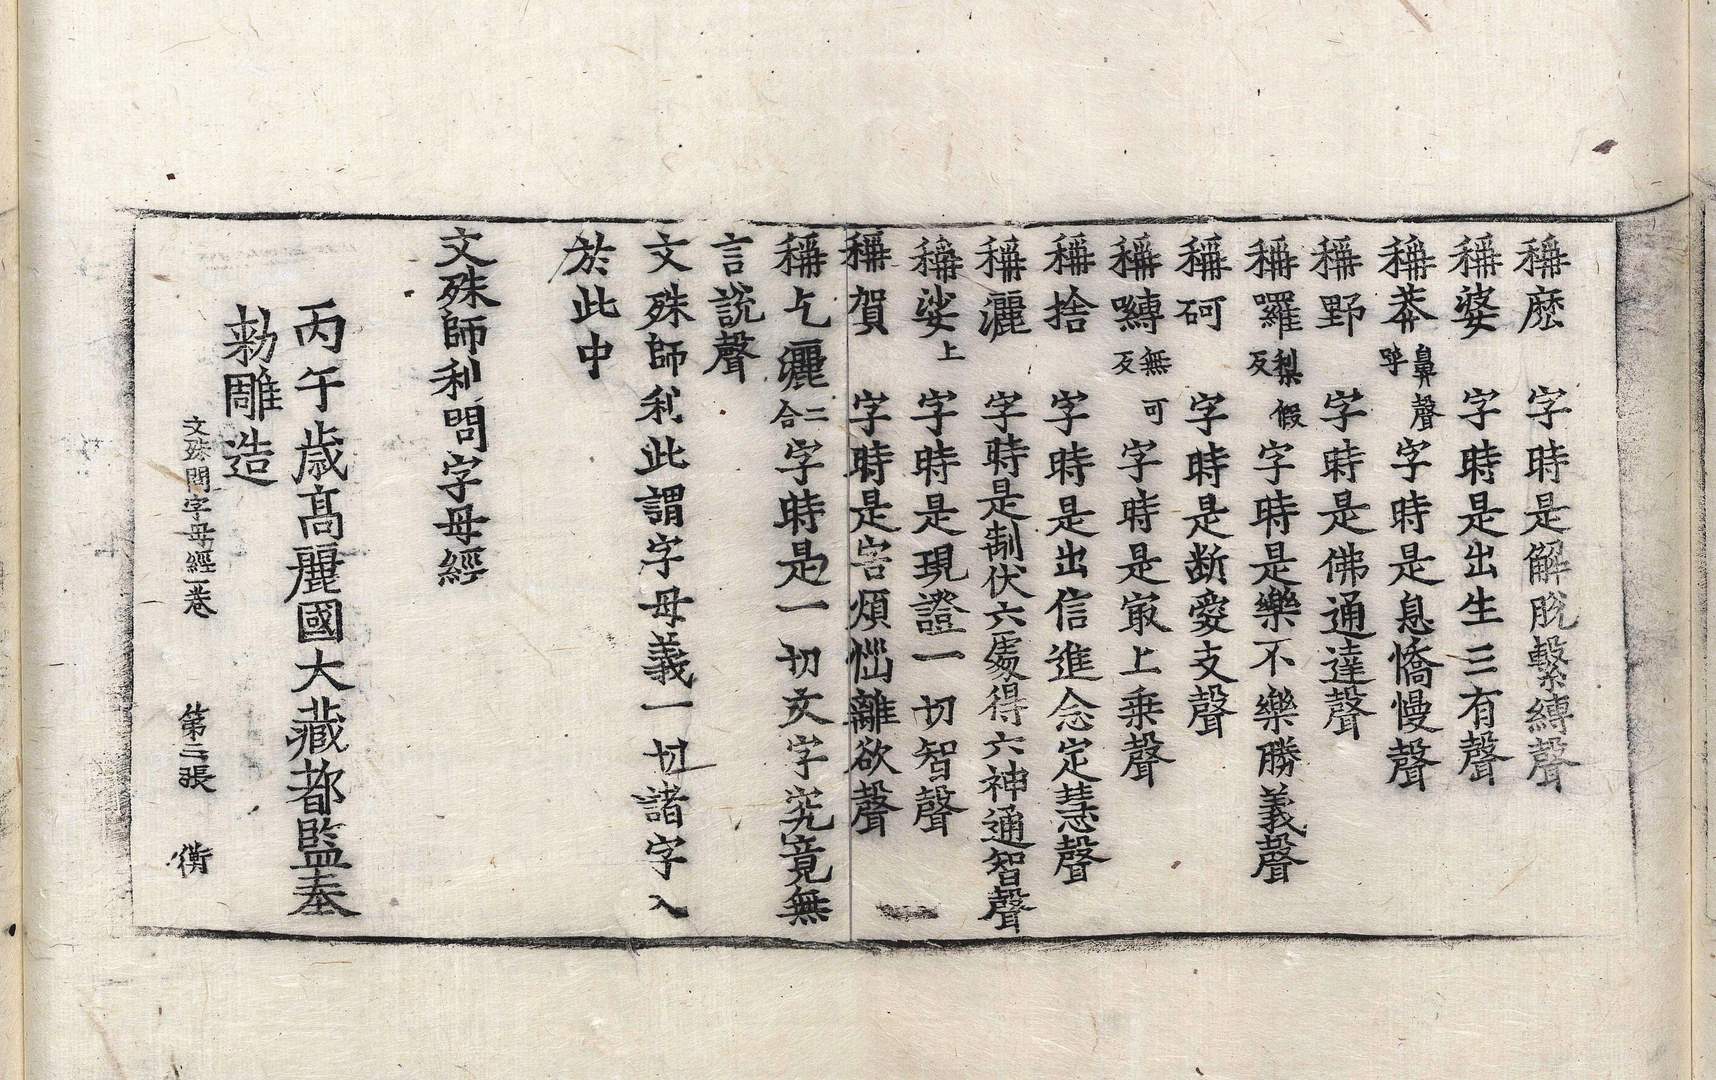 稱麽　字時是解脫繫縛聲
稱婆　字時是出生三有聲
稱莽鼻聲呼字時是息憍慢聲
稱野　字時是佛通達聲
稱囉梨假反字時是樂不樂勝義聲
稱砢　字時是断愛支聲
稱嚩無可反字時是㝡上乗聲
稱捨　字時是出信進念定慧聲
稱灑　字時是制伏六處得六神通智聲
稱娑上　字時是現證一切智聲
稱賀　字時是害煩惱離欲聲
稱乞灑二合字時是一切文字究竟無
言說聲
文殊師利此謂字母義一切諸字入
於此中
文殊師利問字母經
丙午歳髙麗國大藏都監奉
勑雕造
文殊問字母經一卷　第二張　衡